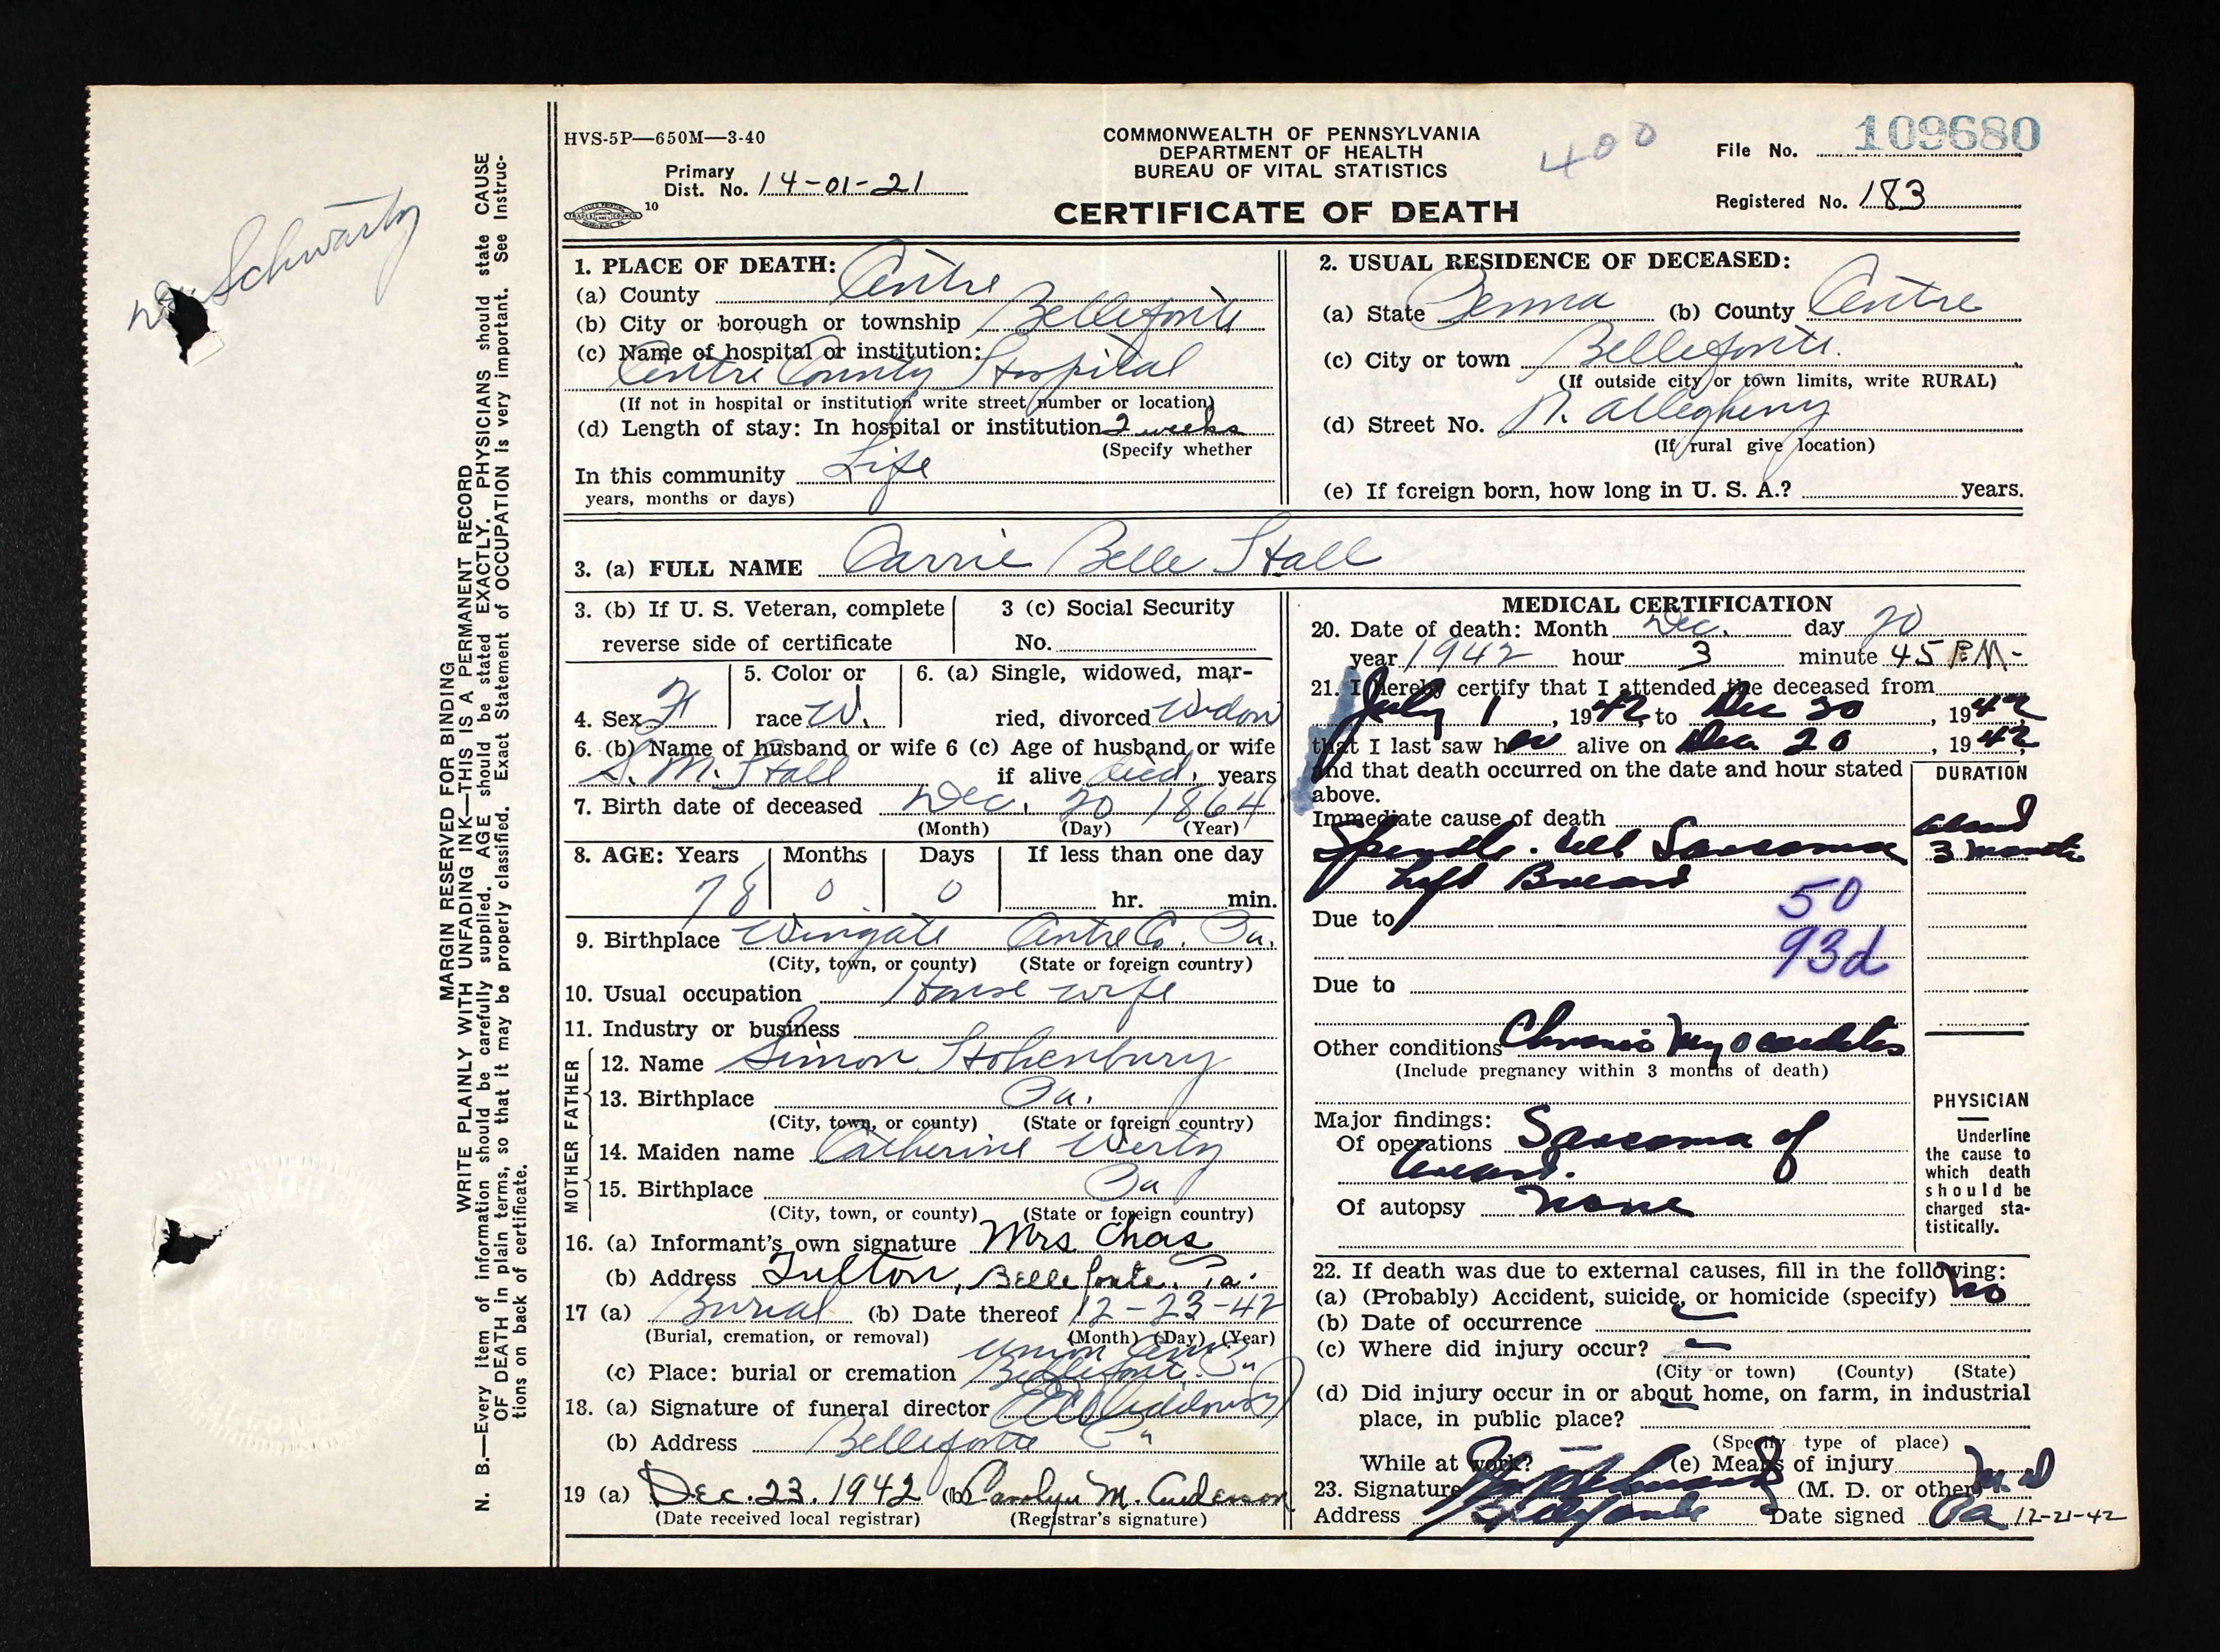 HVS-5P—650M—3-40
COMMONWEALTH OF PENNSYLVANIA
DEPARTMENT OF HEALTH
BUREAU OF VITAL STATISTICS
CERTIFICATE OF DEATH
400
File No. 109680
Registered No. 183
Primary
Dist. No. 14-01-21
10
Schwartz
MARGIN RESERVED FOR BINDING
WRITE PLAINLY WITH UNFADING INK—THIS IS A PERMANENT RECORD
N. B.—Every item of information should be carefully supplied. AGE should be stated EXACTLY. PHYSICIANS should state CAUSE
OF DEATH in plain terms, so that it may be properly classified. Exact Statement of OCCUPATION is very important. See Instruc-
tions on back of certificate.
1. PLACE OF DEATH:
(a) County Centre
(b) City or borough or township Bellefonte
(c) Name of hospital or institution:
Centre County Hospital
(If not in hospital or institution write street number or location)
(d) Length of stay: In hospital or institution 2 weeks
(Specify whether
In this community Life
years, months or days)
2. USUAL RESIDENCE OF DECEASED:
(a) State Penna (b) County Centre
(c) City or town Bellefonte.
(If outside city or town limits, write RURAL)
(d) Street No. N. Allegheny
(If rural give location)
(e) If foreign born, how long in U. S. A.? years.
3. (a) FULL NAME Carrie Belle Stall
3. (b) If U. S. Veteran, complete
reverse side of certificate
3 (c) Social Security
No.
4. Sex F
5. Color or
race W.
6. (a) Single, widowed, mar-
ried, divorced Widow
6. (b) Name of husband or wife 6 (c) Age of husband or wife
S. M. Stall if alive died, years
7. Birth date of deceased Dec. 20 1864
(Month) (Day) (Year)
8. AGE: Years Months Days If less than one day
78 0 0 hr. min.
9. Birthplace Wingate Centre Co. Pa.
(City, town, or county) (State or foreign country)
10. Usual occupation House wife
11. Industry or business
FATHER
12. Name Simon Stohenbury
13. Birthplace Pa.
(City, town, or county) (State or foreign country)
MOTHER
14. Maiden name Catherine Wertz
15. Birthplace Pa
(City, town, or county) (State or foreign country)
16. (a) Informant's own signature Mrs Chas
(b) Address Fulton, Bellefonte, Pa.
17 (a) Burial (b) Date thereof 12-23-42
(Burial, cremation, or removal) (Month) (Day) (Year)
Union Cem.
(c) Place: burial or cremation Bellefonte. Pa
18. (a) Signature of funeral director
(b) Address Bellefonte Pa
19 (a) Dec. 23. 1942 (b) Carolyn M. Anderson
(Date received local registrar) (Registrar's signature)
MEDICAL CERTIFICATION
20. Date of death: Month Dec. day 20
year 1942 hour 3 minute 45 P.M.
21. I hereby certify that I attended the deceased from
July 1, 1942, to Dec 20, 1942,
that I last saw her alive on Dec 20, 1942
and that death occurred on the date and hour stated
above.
DURATION
Immediate cause of death
Spindle-cell Sarcoma about
Left Breast 3 months
Due to 50
93d
Due to
Other conditions Chronic Myocarditis
(Include pregnancy within 3 months of death)
Major findings:
Of operations Sarcoma of
breast.
Of autopsy none
PHYSICIAN
Underline
the cause to
which death
should be
charged sta-
tistically.
22. If death was due to external causes, fill in the following:
(a) (Probably) Accident, suicide, or homicide (specify) no
(b) Date of occurrence
(c) Where did injury occur?
(City or town) (County) (State)
(d) Did injury occur in or about home, on farm, in industrial
place, in public place?
(Specify type of place)
While at work? (e) Means of injury
23. Signature (M. D. or other) M. D
Address Bellefonte Pa Date signed 12-21-42